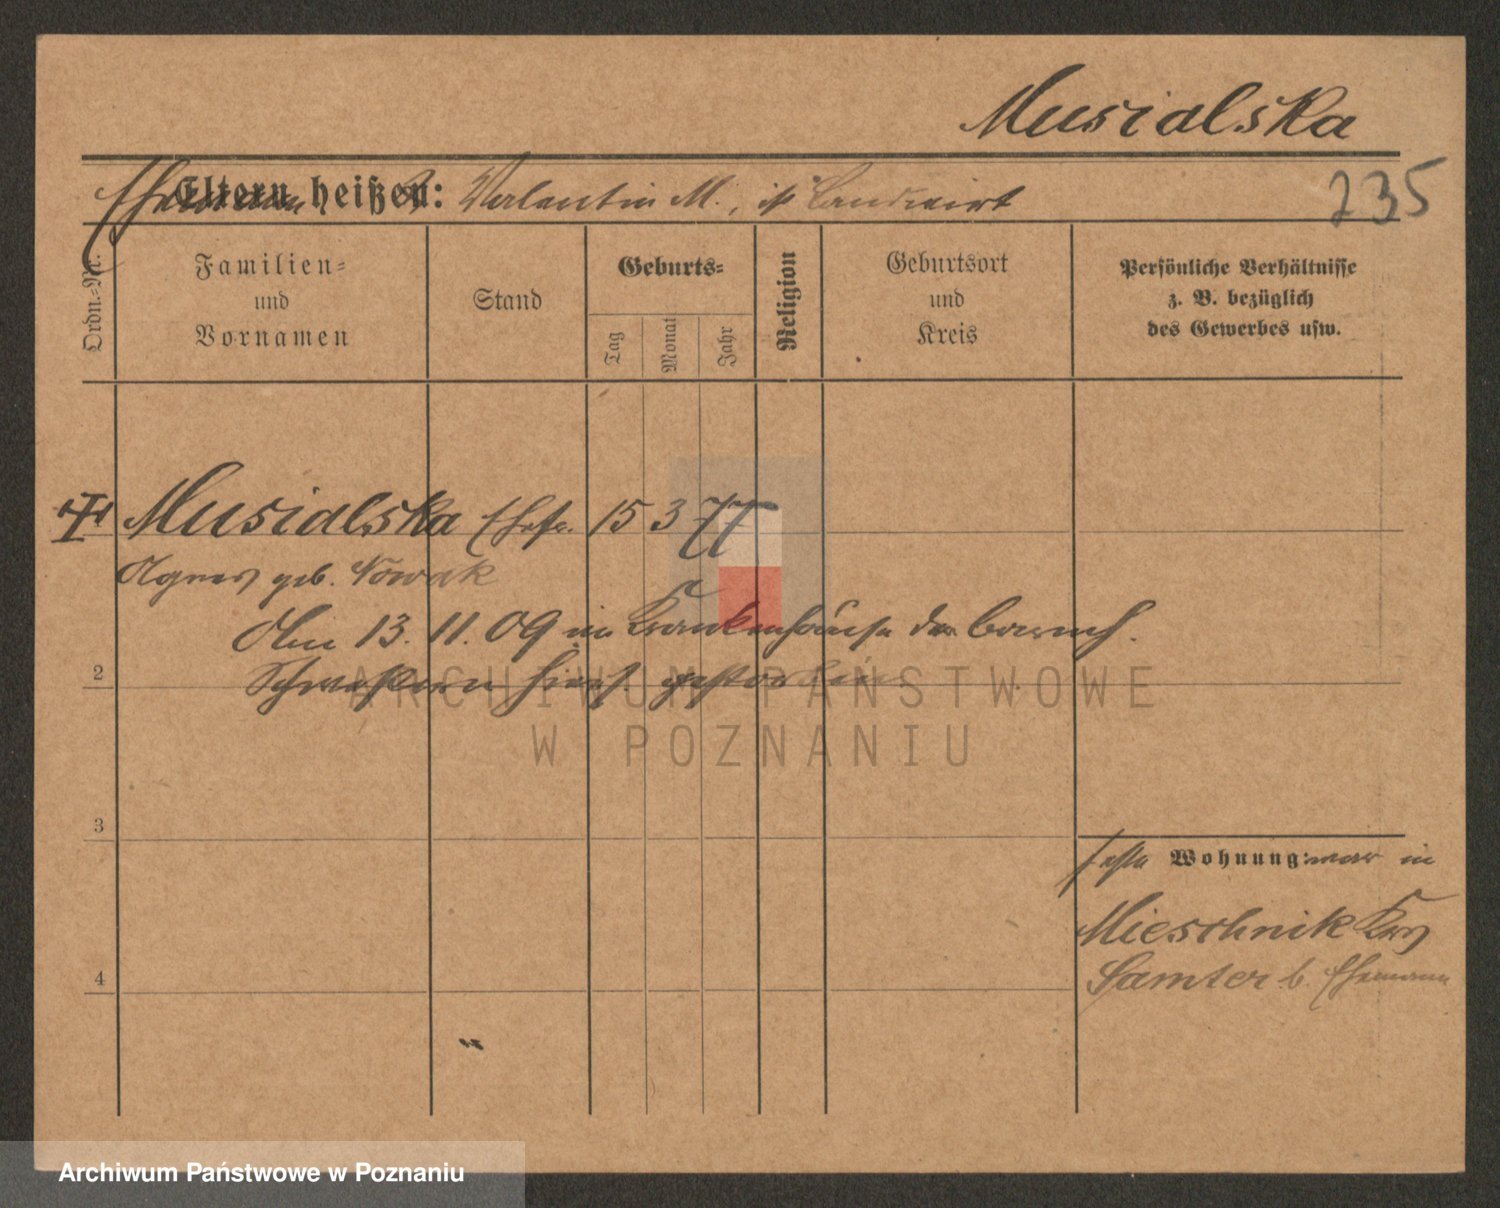 Musialska
Ehemann Eltern heißen: Valentin M., ist Landwirt
235
Ordn.-Nr.
Familien-
und
Vornamen
Stand
Geburts-
Tag
Monat
Jahr
Religion
Geburtsort
und
Kreis
Persönliche Verhältnisse
z. B. bezüglich
des Gewerbes usw.
Musialska Ehefr. 15 3 77
Agnes geb. Nowak
Am 13. 11. 09 im Krankenhause der barmh.
2 Schwestern hiers. gestorben
ARCHIWUM PAŃSTWOWE
W POZNANIU
3
feste Wohnung: war in
Mieschnik Krs
Samter b. Ehemann
4
Archiwum Państwowe w Poznaniu